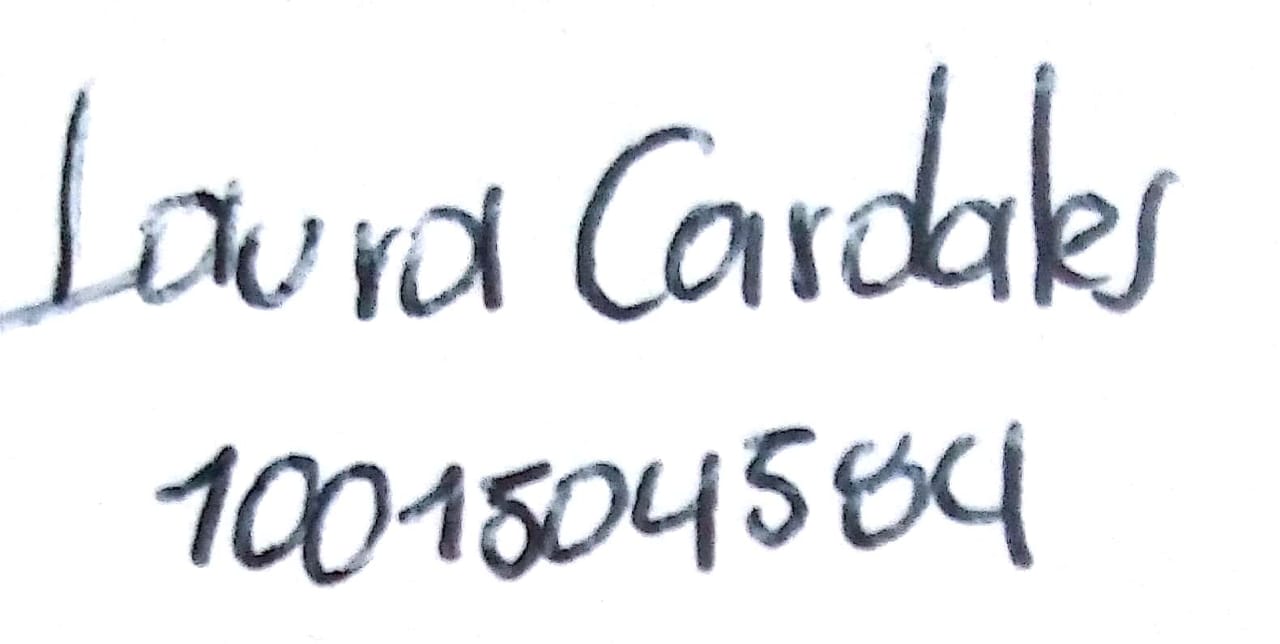 Laura Cardales
1001504584